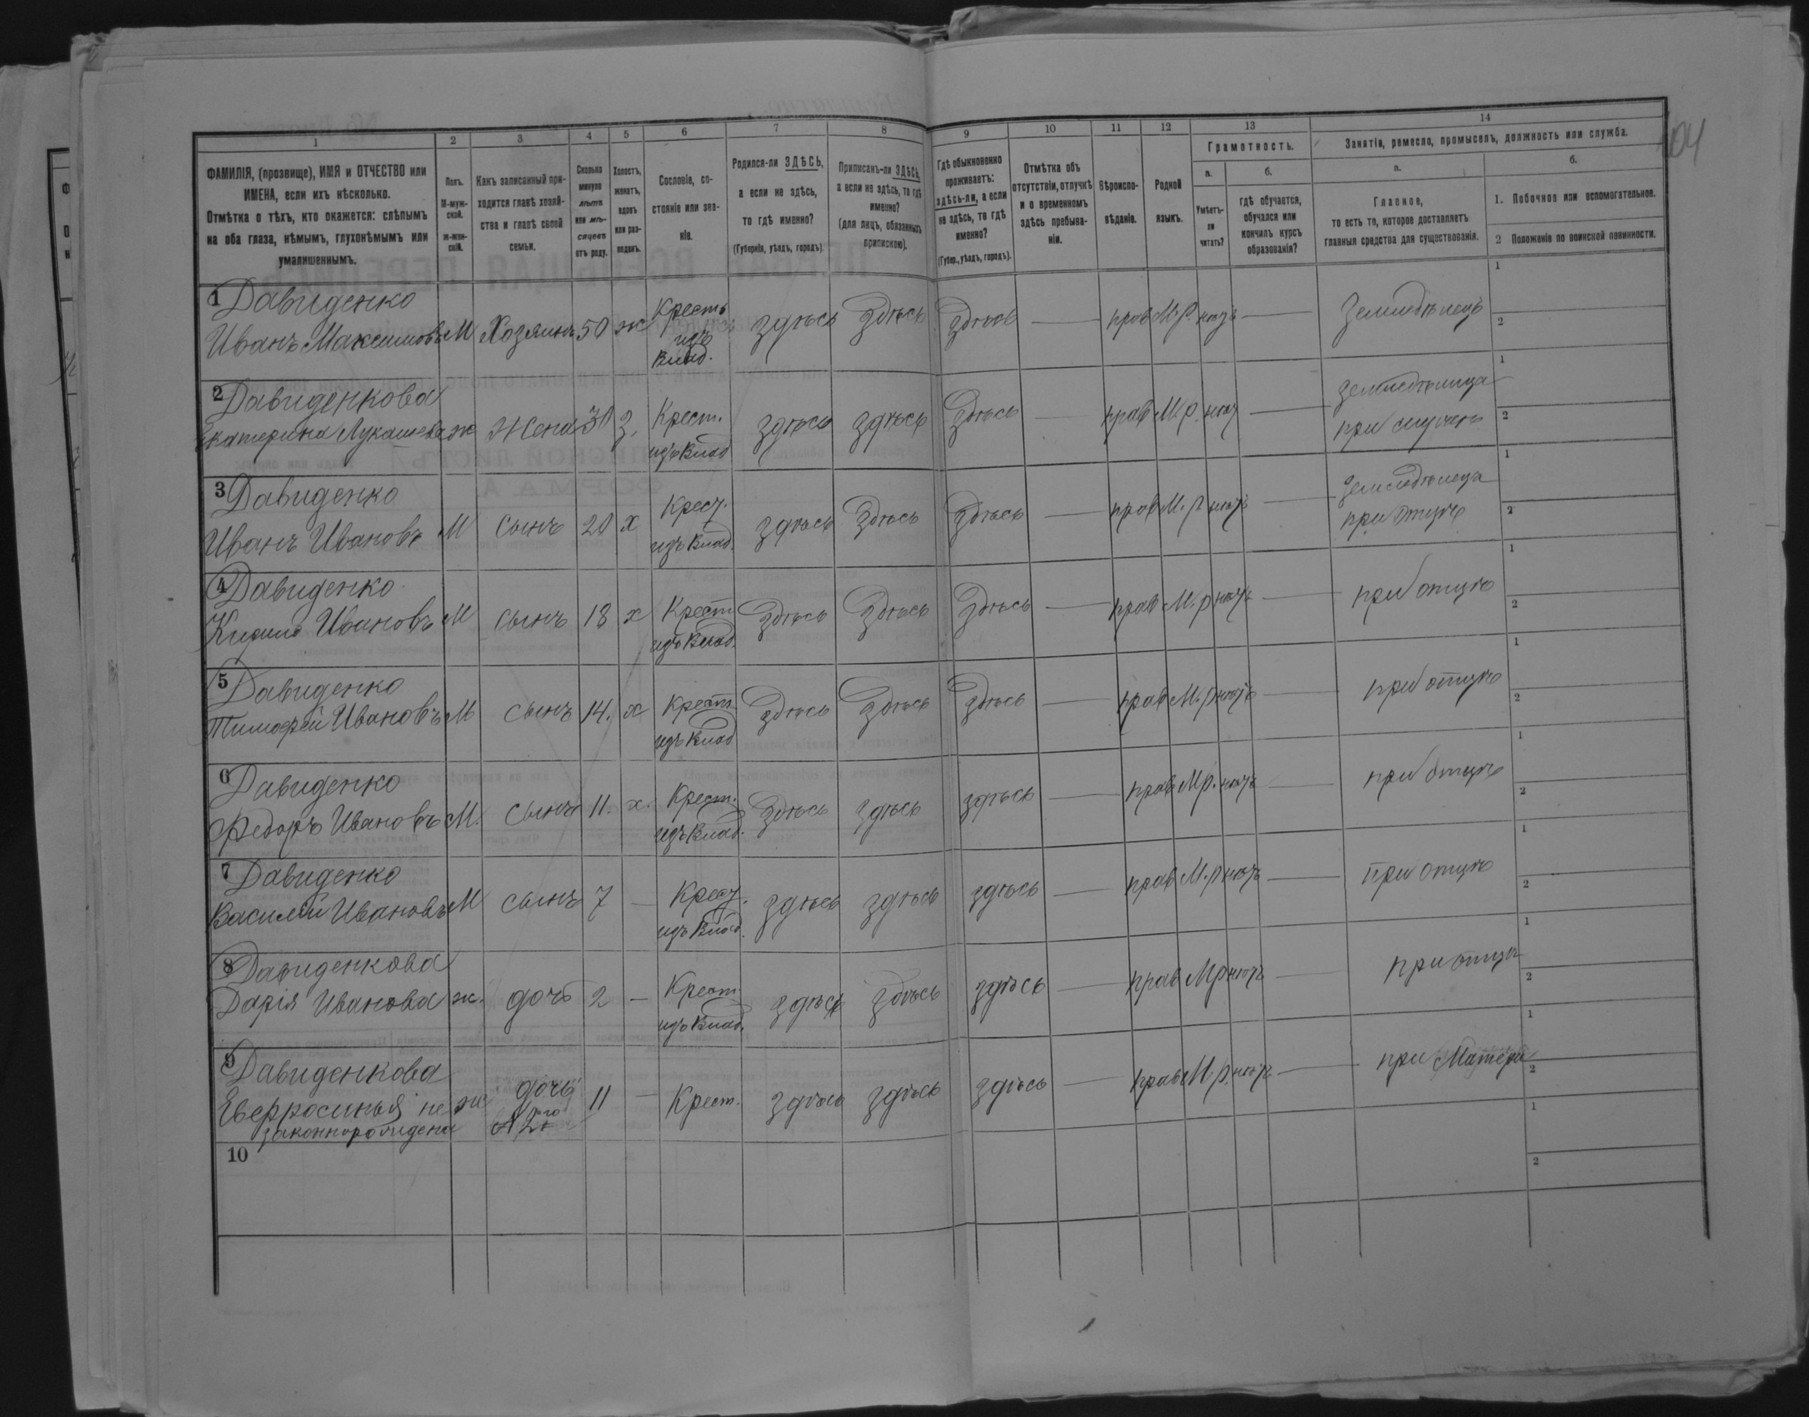 104
1 2 3 4 5 6 7 8 9 10 11 12 13 14
ФАМИЛІЯ, (прозвище), ИМЯ и ОТЧЕСТВО или
ИМЕНА, если ихъ нѣсколько.
Отмѣтка о тѣхъ, кто окажется: слѣпымъ
на оба глаза, нѣмымъ, глухонѣмымъ или
умалишеннымъ.
Полъ.
М-муж-
ской.
Ж-жен-
скій.
Какъ записанный при-
ходится главѣ хозяй-
ства и главѣ своей
семьи.
Сколько
минуло
лѣтъ
или мѣ-
сяцевъ
отъ роду.
Холостъ,
женатъ,
вдовъ
или раз-
веденъ.
Сословіе, со-
стояніе или зва-
ніе.
Родился-ли ЗДѢСЬ,
а если не здѣсь,
то гдѣ именно?
(Губернія, уѣздъ, городъ).
Приписанъ-ли ЗДѢСЬ,
а если не здѣсь, то гдѣ
именно?
(для лицъ, обязанныхъ
припискою).
Гдѣ обыкновенно
проживаетъ:
здѣсь-ли, а если
не здѣсь, то гдѣ
именно?
(Губер., уѣздъ, городъ).
Отмѣтка объ
отсутствіи, отлучкѣ
и о временномъ
здѣсь пребыва-
ніи.
Вѣроиспо-
вѣданіе.
Родной
языкъ.
Грамотность.
а.
Умѣетъ-
ли
читать?
б.
гдѣ обучается,
обучался или
кончилъ курсъ
образованія?
Занятіе, ремесло, промыселъ, должность или служба.
а.
Главное,
то есть то, которое доставляетъ
главныя средства для существованія.
б.
1. Побочное или вспомогательное.
2 Положеніе по воинской повинности.
1 Давиденко
Иванъ Максимовъ М Хозяинъ 50 ж Крестъ изъ Влад. здѣсь здѣсь здѣсь — прав М.р. нѣтъ Земледѣлецъ
1
2
2 Давиденкова
Екатерина Лукашева ж Жена з. Крест. изъ Влад здѣсь здѣсь здѣсь — прав М.р. нѣт — земледѣлица при
1
2
3 Давиденко
Иванъ Ивановъ М сынъ 20 х Крест. изъ Влад. здѣсь здѣсь здѣсь — прав М.р нѣтъ — при отцѣ
1
2
4 Давиденко
Кирило Ивановъ М сынъ 18 х Крест изъ Влад. здѣсь здѣсь здѣсь — прав М.р нѣтъ — при отцѣ
1
2
5 Давиденко
Тимофей Ивановъ М сынъ 14. х Крест изъ Влад здѣсь здѣсь здѣсь — прав М.р нѣтъ — при отцѣ
1
2
6 Давиденко
Федоръ Ивановъ М. сынъ 11. х. Крест. изъ Влад. здѣсь здѣсь здѣсь — прав М р. нѣтъ — при отцѣ
1
2
7 Давиденко
Василій Ивановъ М сынъ 7 — Крест. изъ Влад. здѣсь здѣсь здѣсь — прав М.р нѣтъ — при отцѣ
1
2
8 Давиденкова
Дарія Иванова ж. дочь 2 — Крест изъ Влад. здѣсь здѣсь здѣсь — прав М р нѣтъ — при отцѣ
1
2
9 Давиденкова
не ж дочь 11 — Крест. здѣсь здѣсь здѣсь — прав М.р. нѣтъ — при Матери
законнорожидена
1
2
10
1
2